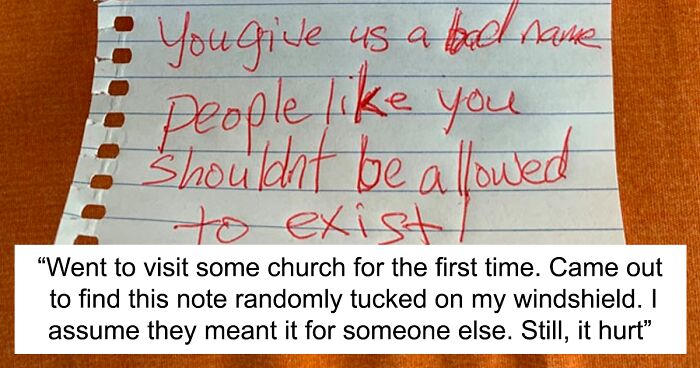 You give us a bad name
people like you
shouldnt be allowed
to exist!
“Went to visit some church for the first time. Came out
to find this note randomly tucked on my windshield. I
assume they meant it for someone else. Still, it hurt”